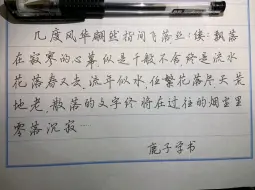 几度风华翩然指间飞落，丝丝续续飘落
在寂寥的心幕，似是千般不舍终是流水
花落春又去，流年似水，任繁花落尽，天荒
地老，散落的文字终将在过往的烟尘里
零落沉寂…
鹿子学书